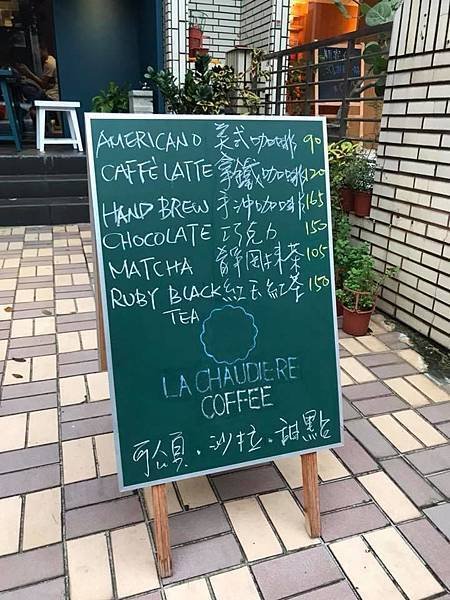 AMERICANO 美式咖啡 90
CAFFÈ LATTE 拿鐵咖啡 120
HAND BREW 手沖咖啡 165
CHOCOLATE 巧克力 150
MATCHA 靜岡抹茶
RUBY BLACK TEA 紅玉紅茶 150
LA CHAUDIERE
COFFEE
可頌.沙拉.甜點